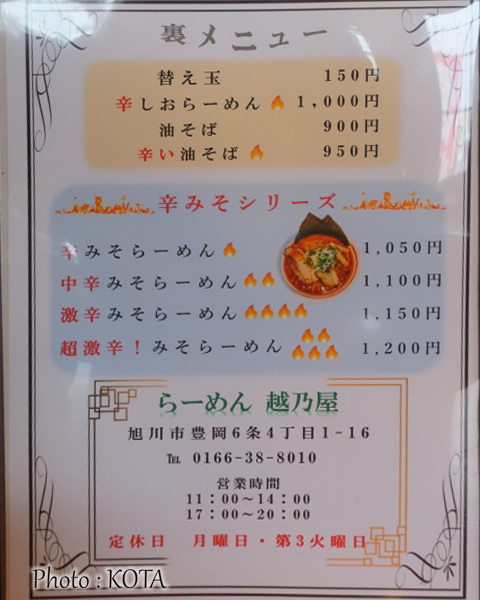 裏メニュー
替え玉 150円
辛しおらーめん 1,000円
油そば 900円
辛い油そば 950円
辛みそシリーズ
辛みそらーめん 1,050円
中辛みそらーめん 1,100円
激辛みそらーめん 1,150円
超激辛!みそらーめん 1,200円
らーめん 越乃屋
旭川市豊岡6条4丁目1-16
℡ 0166-38-8010
営業時間
11：00〜14：00
17：00〜20：00
定休日 月曜日・第3火曜日
Photo : KOTA